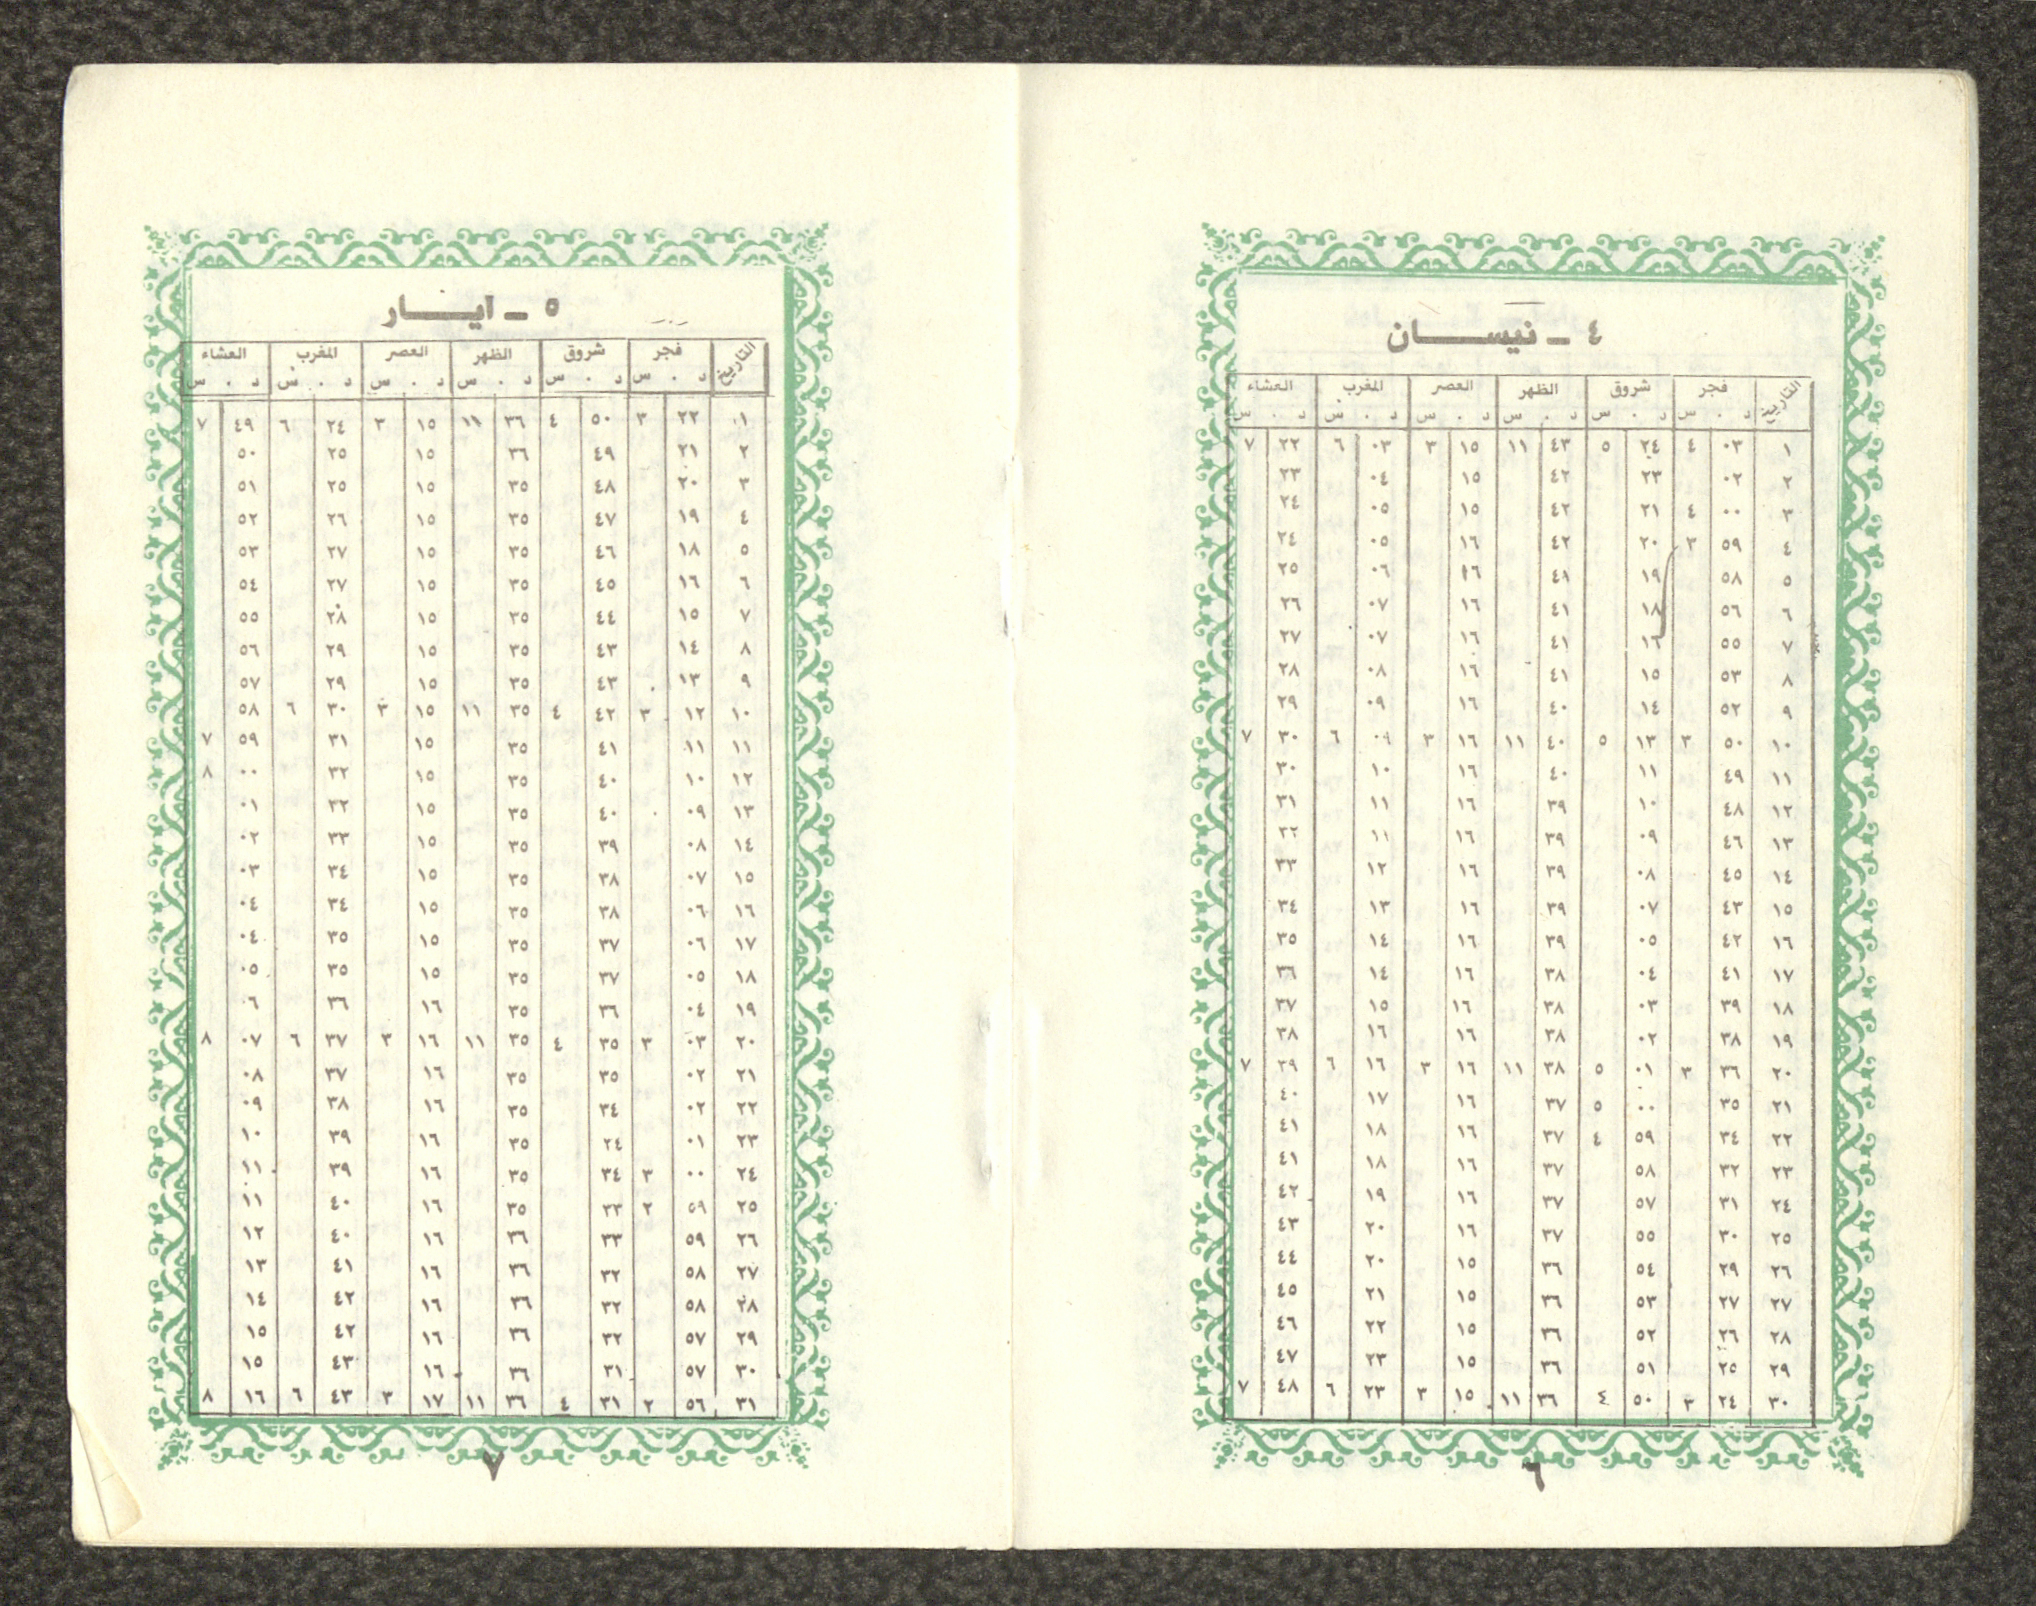 ٤ ـ نيســـان
التاريخ فجر شروق الظهر العصر المغرب العشاء
د . س د . س د . س د . س د . س د . س
١ ٠٣ ٤ ٢٤ ٥ ٤٣ ١١ ١٥ ٣ ٠٣ ٦ ٢٢ ٧
٢ ٠٢ ٢٣ ٤٢ ١٥ ٠٤ ٢٣
٣ ٠٠ ٤ ٢١ ٤٢ ١٥ ٠٥ ٢٤
٤ ٥٩ ٣ ٢٠ ٤٢ ١٦ ٠٥ ٢٤
٥ ٥٨ ١٩ ٤١ ١٦ ٠٦ ٢٥
٦ ٥٦ ١٨ ٤١ ١٦ ٠٧ ٢٦
٧ ٥٥ ١٦ ٤١ ١٦ ٠٧ ٢٧
٨ ٥٣ ١٥ ٤١ ١٦ ٠٨ ٢٨
٩ ٥٢ ١٤ ٤٠ ١٦ ٠٩ ٢٩
١٠ ٥٠ ٣ ١٣ ٥ ٤٠ ١١ ١٦ ٣ ٠٩ ٦ ٣٠ ٧
١١ ٤٩ ١١ ٤٠ ١٦ ١٠ ٣٠
١٢ ٤٨ ١٠ ٣٩ ١٦ ١١ ٣١
١٣ ٤٦ ٠٩ ٣٩ ١٦ ١١ ٣٢
١٤ ٤٥ ٠٨ ٣٩ ١٦ ١٢ ٣٣
١٥ ٤٣ ٠٧ ٣٩ ١٦ ١٣ ٣٤
١٦ ٤٢ ٠٥ ٣٩ ١٦ ١٤ ٣٥
١٧ ٤١ ٠٤ ٣٨ ١٦ ١٤ ٣٦
١٨ ٣٩ ٠٣ ٣٨ ١٦ ١٥ ٣٧
١٩ ٣٨ ٠٢ ٣٨ ١٦ ١٦ ٣٨
٢٠ ٣٦ ٣ ٠١ ٥ ٣٨ ١١ ١٦ ٣ ١٦ ٦ ٣٩ ٧
٢١ ٣٥ ٠٠ ٥ ٣٧ ١٦ ١٧ ٤٠
٢٢ ٣٤ ٥٩ ٤ ٣٧ ١٦ ١٨ ٤١
٢٣ ٣٢ ٥٨ ٣٧ ١٦ ١٨ ٤١
٢٤ ٣١ ٥٧ ٣٧ ١٦ ١٩ ٤٢
٢٥ ٣٠ ٥٥ ٣٧ ١٦ ٢٠ ٤٣
٢٦ ٢٩ ٥٤ ٣٦ ١٥ ٢٠ ٤٤
٢٧ ٢٧ ٥٣ ٣٦ ١٥ ٢١ ٤٥
٢٨ ٢٦ ٥٢ ٣٦ ١٥ ٢٢ ٤٦
٢٩ ٢٥ ٥١ ٣٦ ١٥ ٢٣ ٤٧
٣٠ ٢٤ ٣ ٥٠ ٤ ٣٦ ١١ ١٥ ٣ ٢٣ ٦ ٤٨ ٧
٦
٥ ـ ايـــار
التاريخ فجر شروق الظهر العصر المغرب العشاء
د . س د . س د . س د . س د . س د . س
١ ٢٢ ٣ ٥٠ ٤ ٣٦ ١١ ١٥ ٣ ٢٤ ٦ ٤٩ ٧
٢ ٢١ ٤٩ ٣٦ ١٥ ٢٥ ٥٠
٣ ٢٠ ٤٨ ٣٥ ١٥ ٢٥ ٥١
٤ ١٩ ٤٧ ٣٥ ١٥ ٢٦ ٥٢
٥ ١٨ ٤٦ ٣٥ ١٥ ٢٧ ٥٣
٦ ١٦ ٤٥ ٣٥ ١٥ ٢٧ ٥٤
٧ ١٥ ٤٤ ٣٥ ١٥ ٢٨ ٥٥
٨ ١٤ ٤٣ ٣٥ ١٥ ٢٩ ٥٦
٩ ١٣ ٤٣ ٣٥ ١٥ ٢٩ ٥٧
١٠ ١٢ ٣ ٤٢ ٤ ٣٥ ١١ ١٥ ٣ ٣٠ ٦ ٥٨
١١ ١١ ٤١ ٣٥ ١٥ ٣١ ٥٩ ٧
١٢ ١٠ ٤٠ ٣٥ ١٥ ٣٢ ٠٠ ٨
١٣ ٠٩ ٤٠ ٣٥ ١٥ ٣٢ ٠١
١٤ ٠٨ ٣٩ ٣٥ ١٥ ٣٣ ٠٢
١٥ ٠٧ ٣٨ ٣٥ ١٥ ٣٤ ٠٣
١٦ ٠٦ ٣٨ ٣٥ ١٥ ٣٤ ٠٤
١٧ ٠٦ ٣٧ ٣٥ ١٥ ٣٥ ٠٤
١٨ ٠٥ ٣٧ ٣٥ ١٥ ٣٥ ٠٥
١٩ ٠٤ ٣٦ ٣٥ ١٦ ٣٦ ٠٦
٢٠ ٠٣ ٣ ٣٥ ٤ ٣٥ ١١ ١٦ ٣ ٣٧ ٦ ٠٧ ٨
٢١ ٠٢ ٣٥ ٣٥ ١٦ ٣٧ ٠٨
٢٢ ٠٢ ٣٤ ٣٥ ١٦ ٣٨ ٠٩
٢٣ ٠١ ٢٤ ٣٥ ١٦ ٣٩ ١٠
٢٤ ٠٠ ٣ ٣٤ ٣٥ ١٦ ٣٩ ١١
٢٥ ٥٩ ٢ ٣٣ ٣٥ ١٦ ٤٠ ١١
٢٦ ٥٩ ٣٣ ٣٦ ١٦ ٤٠ ١٢
٢٧ ٥٨ ٣٢ ٣٦ ١٦ ٤١ ١٣
٢٨ ٥٨ ٣٢ ٣٦ ١٦ ٤٢ ١٤
٢٩ ٥٧ ٣٢ ٣٦ ١٦ ٤٢ ١٥
٣٠ ٥٧ ٣١ ٣٦ ١٦ ٤٣ ١٥
٣١ ٥٦ ٢ ٣١ ٤ ٣٦ ١١ ١٧ ٣ ٤٣ ٦ ١٦ ٨
٧